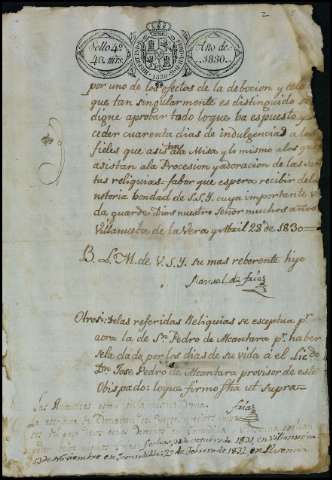 2
Sello 4º
40 mrs.
Año de
1830.
por uno de los efectos de la debocion y celo
que tan singularmente es distinguido se
digne aprobar todo loque ba espuesto y con
ceder cuarenta dias de indulgencias a los
fieles que asistan a Misa y lo mismo alos que
asistan ala Procesion y adoracion de las San
tas reliquias: fabor que espera recibir de la
notoria bondad de S.S.Y. cuya importante vi
da guarde Dios nuestro Señor muchos años
Villanueba de la Vera y Abril 28 de 1830
B. L. M. de V. S. Y. su mas reberente hijo
Manuel de Frias
Otrosi: Delas referidas Reliquias se esceptua pr
aora la de Sn. Pedro de Alcantara pr. haber
sela dado por los dias de su vida á el Licdo
Dn. Jose Pedro de Alcantara provisor de este
Obispado: loque firmo fha ut supra
Frias